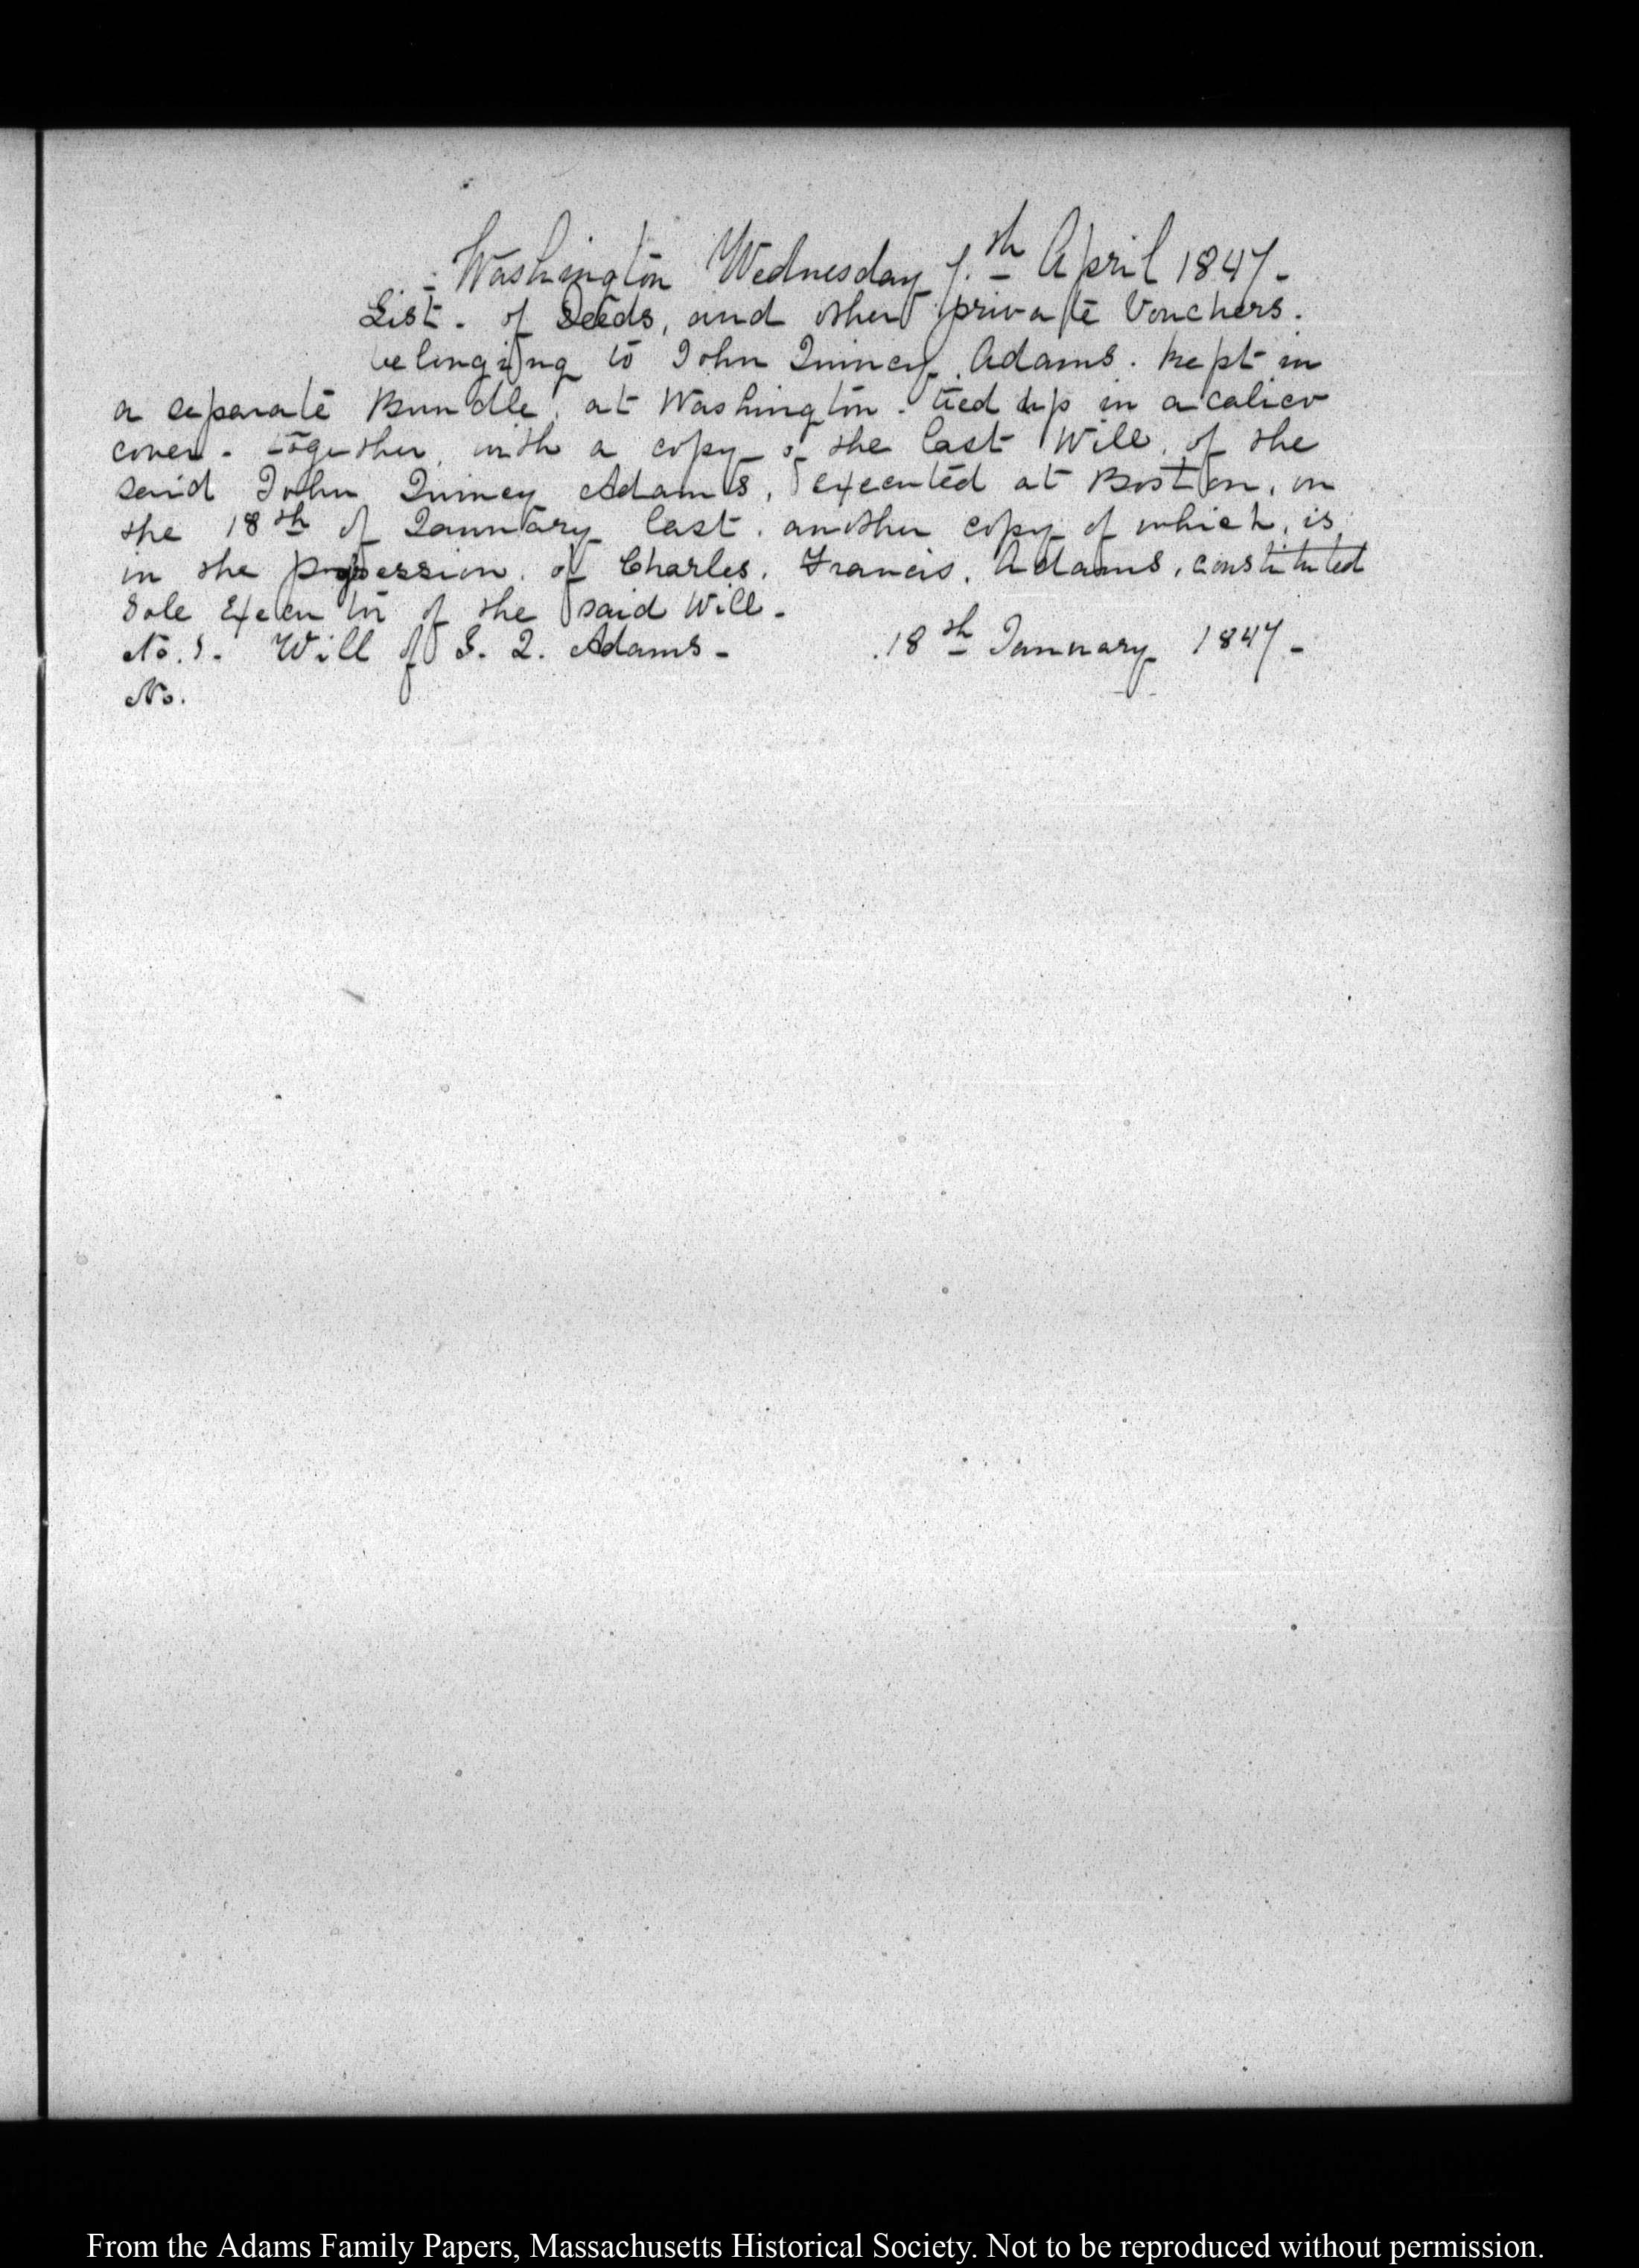 Washington Wednesday 7.th April 1847-
List - of Deeds, and other private Vouchers.
belonging to John Quincy Adams. kept in
a separate Bundle, at Washington - tied up in a calico
cover - together, with a copy of the last Will, of the
said John Quincy Adams, executed at Boston, on
the 18th of January last. another copy of which, is
in the possession, of Charles, Francis, Adams, constituted
Sole Executor of the said Will-
No. 1. Will of J. Q. Adams- 18th January 1847-
No.
From the Adams Family Papers, Massachusetts Historical Society. Not to be reproduced without permission.